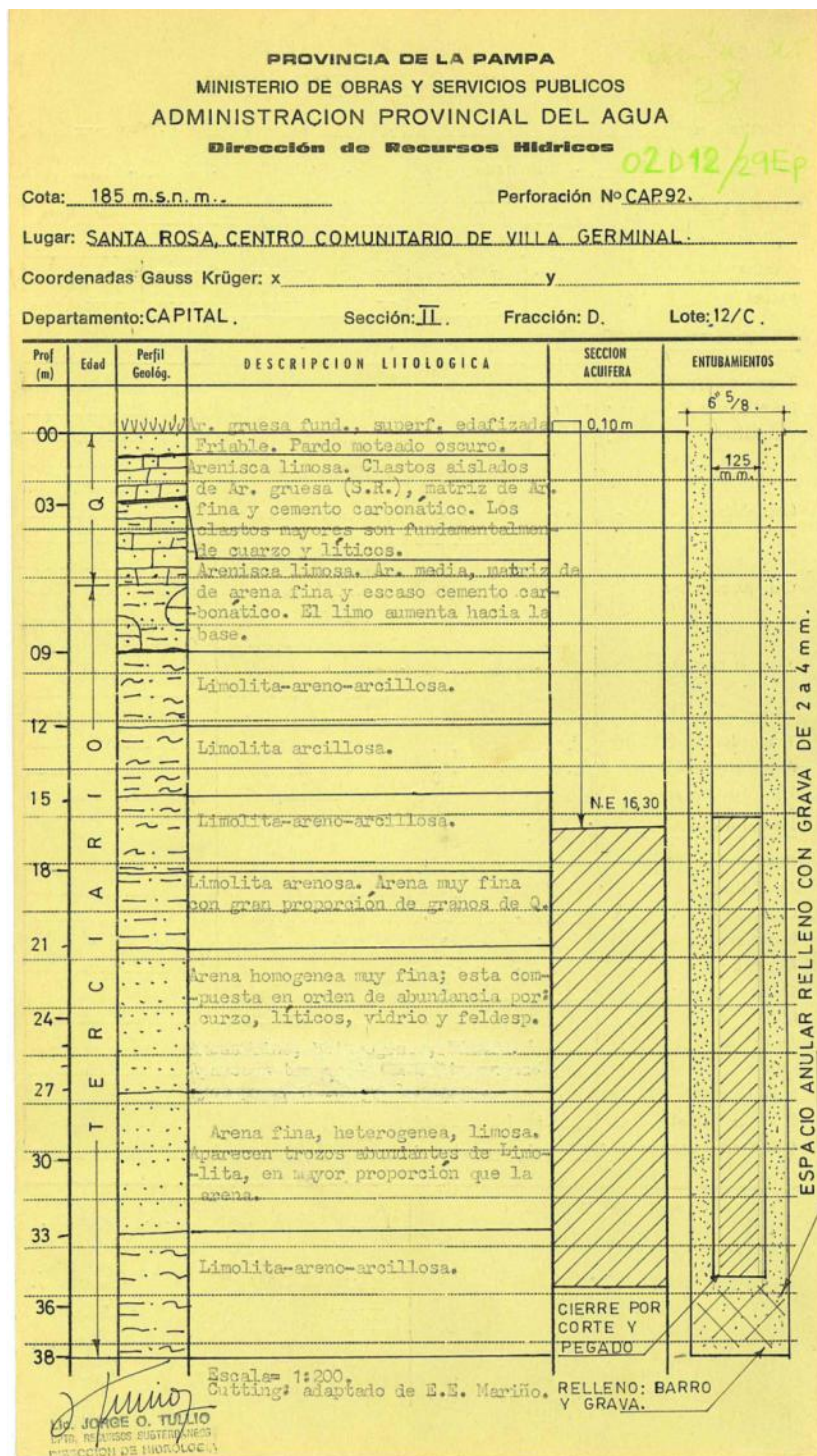 PROVINCIA DE LA PAMPA
MINISTERIO DE OBRAS Y SERVICIOS PUBLICOS
ADMINISTRACION PROVINCIAL DEL AGUA
Dirección de Recursos Hidricos
02D12/29Ep
Cota: 185 m.s.n.m.. Perforación Nº CAP.92.
Lugar: SANTA ROSA, CENTRO COMUNITARIO DE VILLA GERMINAL.
Coordenadas Gauss Krüger: x y
Departamento: CAPITAL. Sección: II. Fracción: D. Lote: 12/C.
Prof (m) Edad Perfil Geológ. DESCRIPCION LITOLOGICA SECCION ACUIFERA ENTUBAMIENTOS
6" 5/8.
Ar. gruesa fund., superf. edafizada 0,10 m
00
Friable. Pardo moteado oscuro.
Arenisca limosa. Clastos aislados
125 m.m.
de Ar. gruesa (S.R.), matriz de Ar.
03
fina y cemento carbonático. Los
Q
clastos mayores son fundamentalmen-
de cuarzo y líticos.
Arenisca limosa. Ar. media, matriz de
de arena fina y escaso cemento car-
-bonático. El limo aumenta hacia la
base.
09
Limolita-areno-arcillosa.
12
Limolita arcillosa.
15
N.E 16,30
Limolita-areno-arcillosa.
18
Limolita arenosa. Arena muy fina
con gran proporción de granos de Q.
21
Arena homogenea muy fina; esta com-
-puesta en orden de abundancia por:
24
curzo, líticos, vidrio y feldesp.
27
Arena fina, heterogenea, limosa.
30
Aparecen trozos abundantes de Limo-
-lita, en mayor proporción que la
arena.
33
Limolita-areno-arcillosa.
36
CIERRE POR
CORTE Y
PEGADO
38
TERCIARIO
ESPACIO ANULAR RELLENO CON GRAVA DE 2 a 4 mm.
Escala= 1:200.
Cutting: adaptado de E.E. Mariño.
RELLENO: BARRO
Y GRAVA.
Lic. JORGE O. TULLIO
DPTO. RECURSOS SUBTERRANEOS
DIRECCION DE HIDROLOGIA